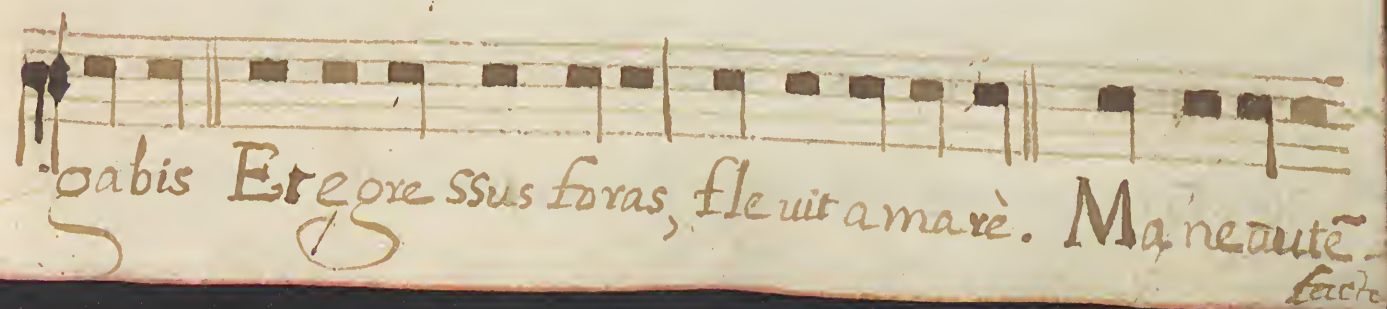 gabis Et egre ssus foras, fle uit amarè. Ma ne autẽ